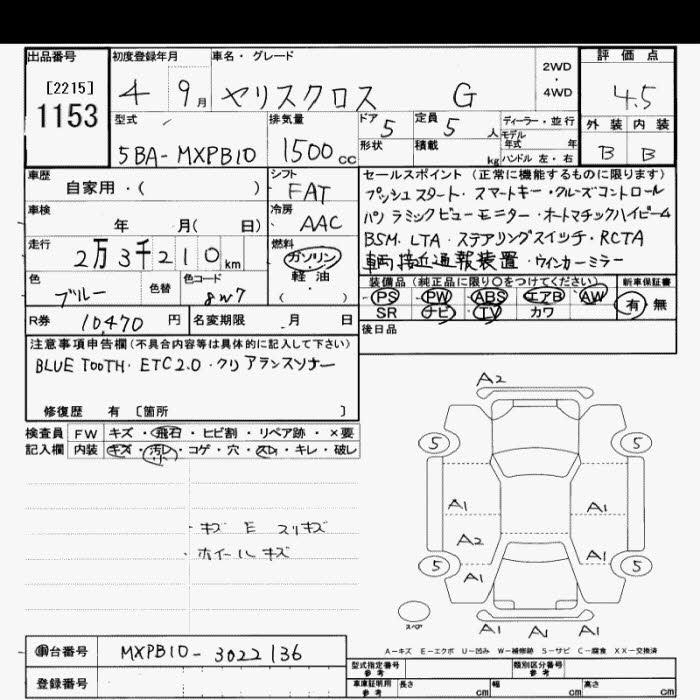 出品番号 初度登録年月 車名・グレード 2WD・4WD 評価点
[2215] 1153 4 9月 ヤリスクロス G 4.5
型式 排気量 ドア 5 定員 5人 ディーラー・並行 外装 内装
5BA-MXPB10 1500cc 形状 積載 kg モデル年式 年 ハンドル 左・右 B B
車歴 自家用・( ) シフト FAT セールスポイント(正常に機能するものに限ります)
プッシュスタート・スマートキー・クルーズコントロール
車検 年 月(日) 冷房 AAC パノラミックビューモニター・オートマチックハイビーム
走行 2万3千210km 燃料 ガソリン・軽油・ BSM・LTA・ステアリングスイッチ・RCTA
車両接近通報装置・ウインカーミラー
色 ブルー 色替 色コード 8W7 装備品(純正品に限り○をつけてください) 新車保証書
PS PW ABS エアB AW 有・無
R券 10470円 名変期限 月 日 SR ナビ TV カワ
注意事項申告欄(不具合内容等は具体的に記入して下さい) 後日品
BLUE TOOTH・ETC2.0・クリアランスソナー
修復歴 有 〔箇所 〕
検査員 FW キズ・飛石・ヒビ割・リペア跡・×要
記入欄 内装 キズ・汚レ・コゲ・穴・スレ・キレ・破レ
小
A2
5 5
A1 A1
A2 A1
5 A1 A1 5
スペア A1 A1 A1
・キズ E スリキズ
・ホイールキズ
A−キズ E−エクボ U−凹み W−補修跡 S−サビ C−腐食 XX−交換済
車台番号 MXPB10-3022136
登録番号
型式指定番号 参考 類別区分番号 参考
車庫証明用 参考 長さ cm 幅 cm 高さ cm